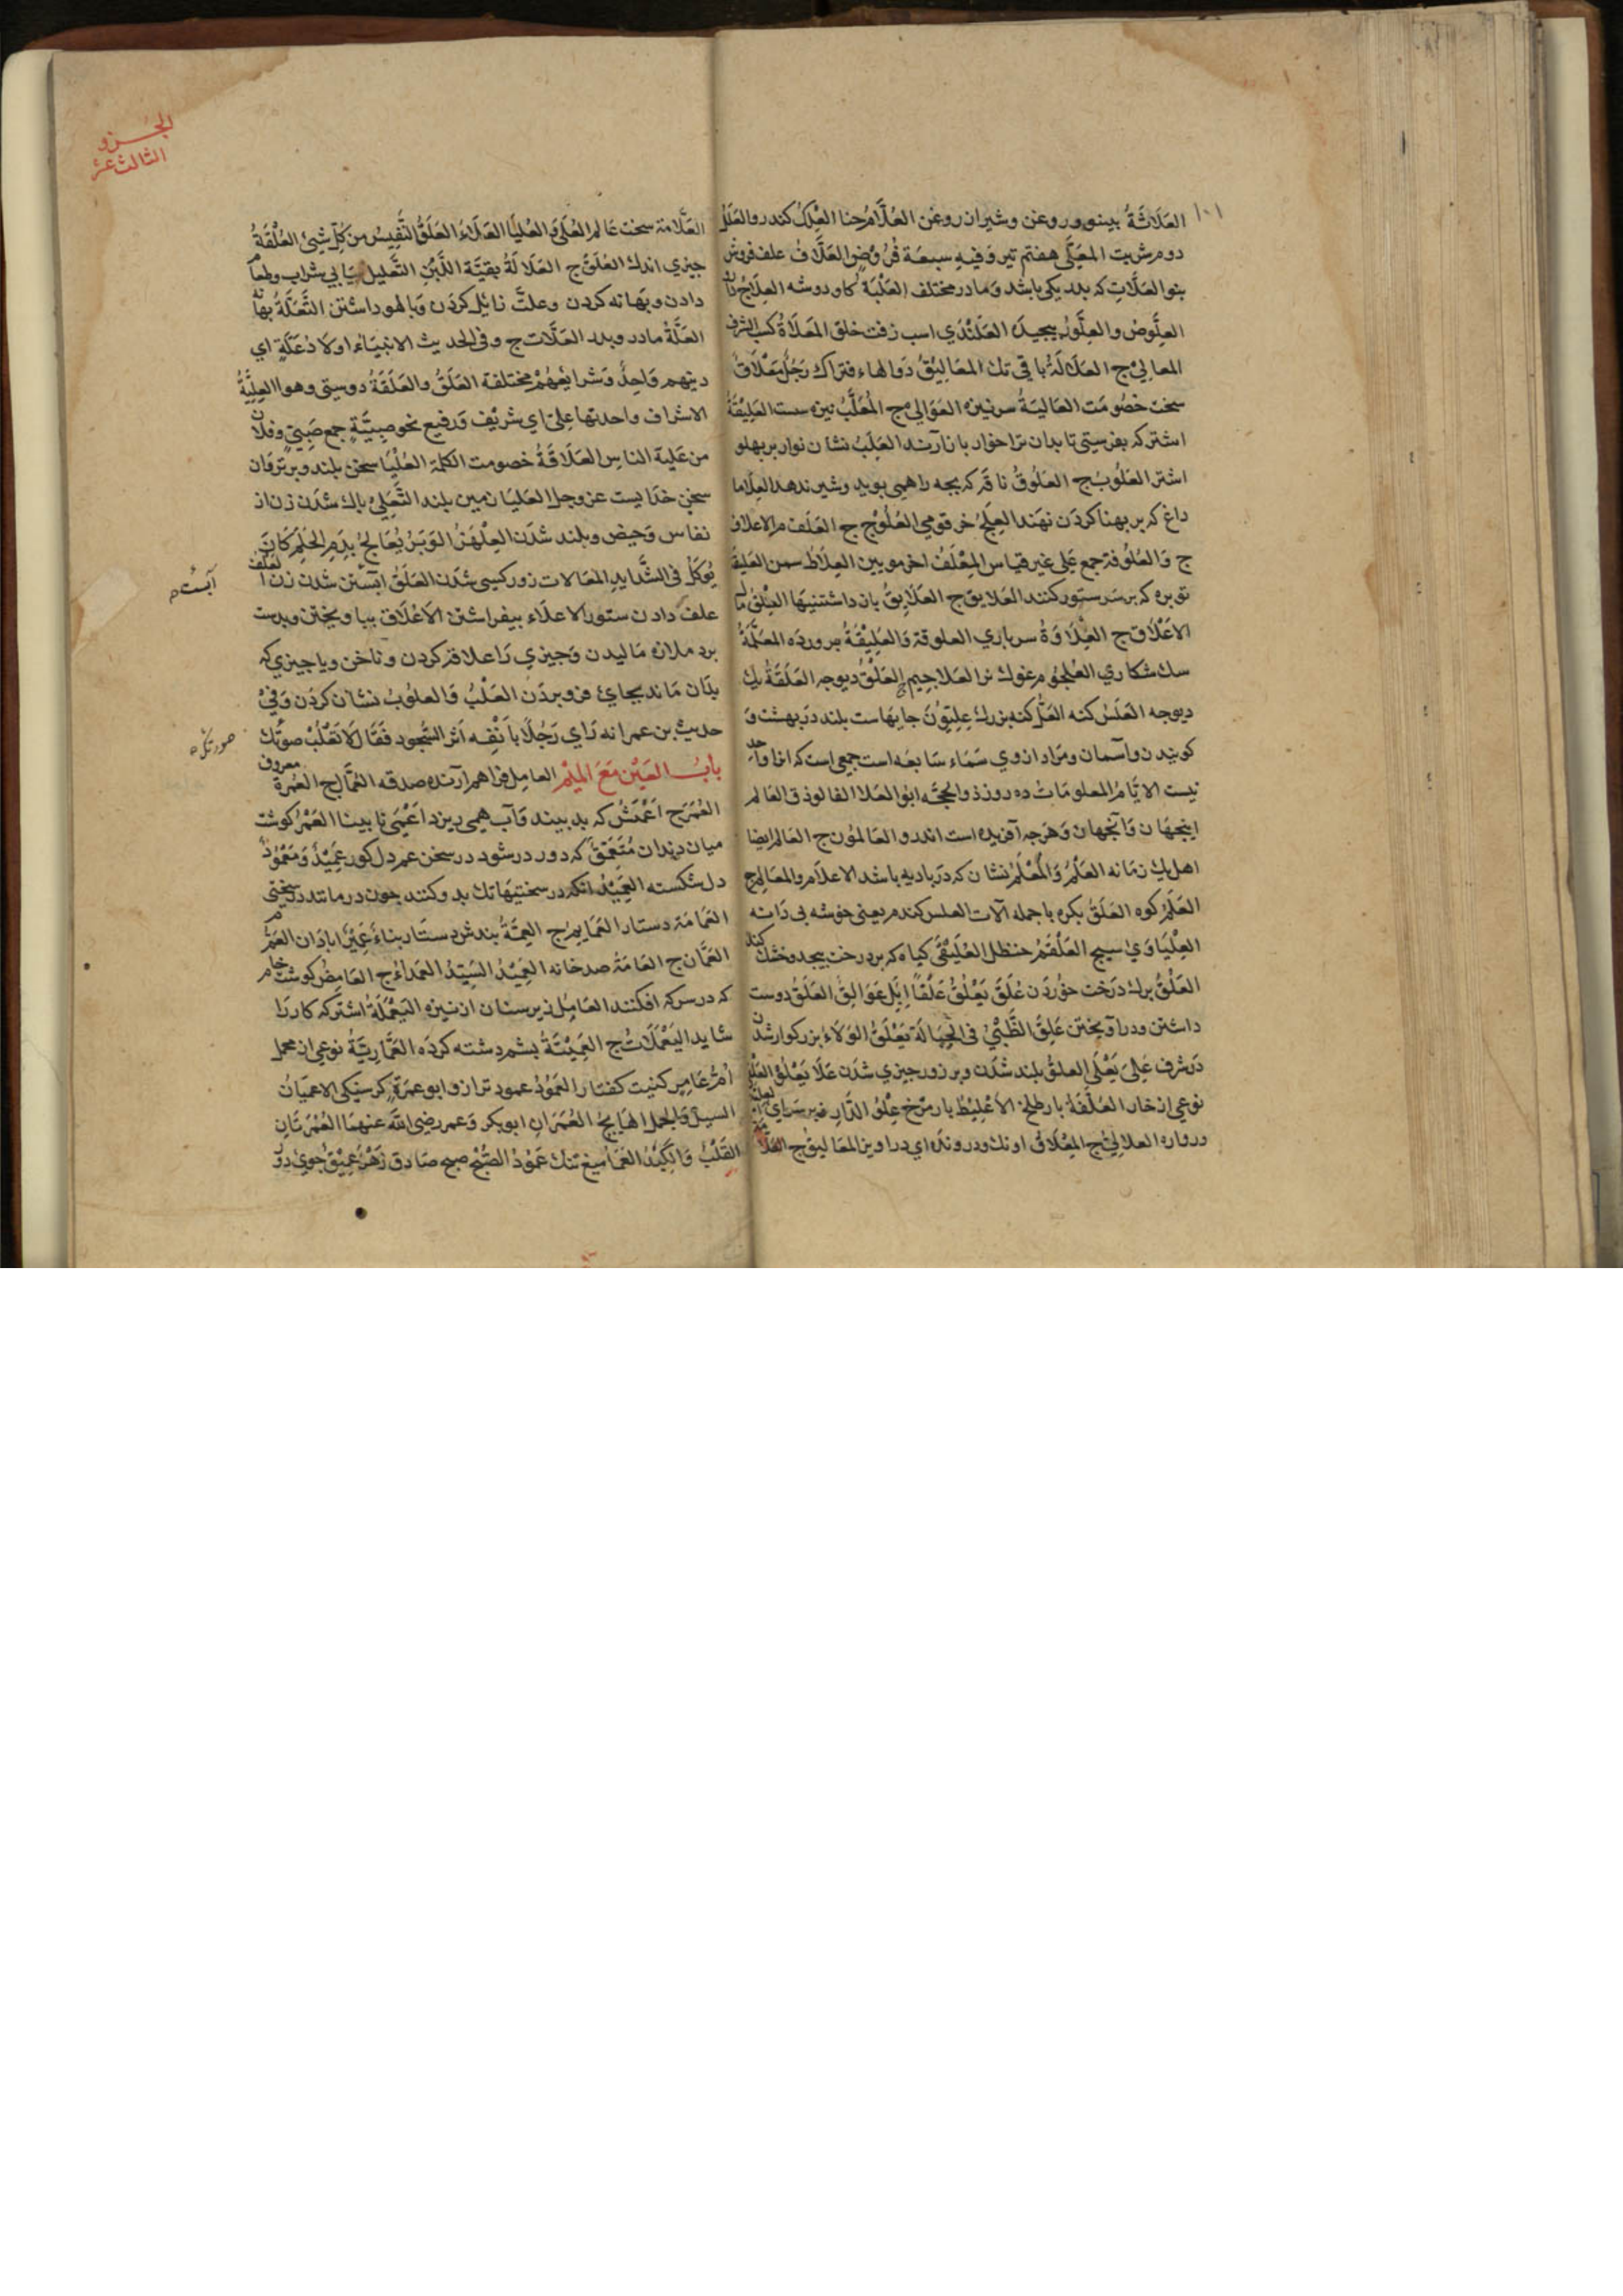 ١٠١
العَلَاثَةُ بینو وروغن وشیران روغن العُلَّامُ حنا العِلْكُ کندر والعَلَلُ
دوم شربت المُعَلَّى هفتم تیر وَفیهِ سبعَة فُرُوضٍ العَلَّافُ علف فروش
بنو العَلَّاتِ که بدر یکی باشد وَمادر مختلف العُلْبَة کاو دوشه العِلَاجُ
العِلَّوْصُ والعِلَّوْزُ بیجیدَه العَلَنْدَي اسب زفت خلق المَعْلَاةُ کسب الشرف
المعالِيْ ج العُلَالَةُ باقی تك المعَالِیْقُ دَوالهاء فتراك رَجُلٌ مِعْلَاقٌ
سخت خصُومَت العَالیَةُ سرنیزه العَوَالِي ج المُعَلَّبُ نیزه سست العَلِیْقَةُ
اشتر که بفرستی تا بدان ترا خوار بار آرند العَلَبُ نشان نوار بر بهلو
اشتر العُلُوبُ ج العَلُوقُ ناقَه که بجه را همی بوید وشیر ندهد العِلَاط
داغ که بر بهنا کردَن نهند العِلْجُ خر قومي العُلُوْج ج العَلَف م الاعلاف
ج وَالعُلُوفة جمع عَلی غیر قیاس المِعْلَفُ اخر موبین العِلَاطُ سمن العَلیقُ
توبره که بر سَر ستور کنند العَلایق ج العَلَایِقُ بار داشتنیهَا العِلْقُ
الاَعْلَاق ج العِلَاوَةُ سرباری العلوقة وَالعَلِیْقَةُ بروردَه المعَلَّمَةُ
سك شکاري العُلْجُوْم غوك نر العَلاجِیم ج العَلَقُ دیوجه العَلَقَةُ یك
دیوجه العَلَسُ کنه العَلُّ کنه بزرك عِلِیُّوْنَ جایهاست بلند دَر بهشت وَ
کویند ن وآسمان ومرَاد ازوي سَمَاء سَابعَه است جمعی است که انرا واحد
نیست الایَّامُ المعلومَاتُ ده روز ذو الحجَّه ابوُ العَلَا الفالوذق العَالم
اینجهَان وَآنجهان وَهَرجه آفریده است اندرو العَالَمُوْن ج العَالم ایضا
اهل یك زمَانه العَلَمُ وَالمُعْلَمُ نشان که دَر بادیه باشد الاعلام والمعَالِم ج
العَلَمُ کوه العَلَقُ بکره باجمله آلات العلس کندم یعنی خوشه بی دَانه
العِلْیَاوَيْ سیبج العَلْقَمُ حنظل العُلَیْقَى کیاه که بر درخت بیجد وخشك کند
العَلُقُ برك دَرَخت خوُردَن عَلَقَ یَعْلُقُ عَلْقًا اِبِل عَوَالِقُ العَلَقُ دوست
داشتن ودرآویختن عَلِقَ الظَّبْيُ فی الحِبَالَةِ یَعْلَقُ العَلَاءُ بزرکوار شدن
دَر شرف عَلِيَ یَعْلَی العلوُّ بلند شدَن وبر زور جیزي شدَن عَلَا یَعْلُوْ
نوعي از خار العُلَّفَةُ بار طلح الاعْلِیْطُ بار مرخ عِلْوُ الدَّارِ زبر سَرای
دروازه العلالِيّ ج المِعْلَاقُ اونك ودرونده اي دراویز المعَالیقُ ج العَلَاَّ
الجزو
الثالث عشر
العَلَّامَة سخت عَالم العُلَى وَالعُلیَا العَلَاءُ العَلَقُ النَّفِیْسُ مِن کُلِّ شَيْئ العُلْقَةُ
جیزی اندك العُلَق ج العُلَالَةُ بقیَّة اللَّبَنِ التَّعلیل بیابی شراب وطعام
دادن وبهَانه کردن وعلت زائل کردَن وبَالهو داشتن التَّعَلَّةُ بهانه
العَلَّةُ مادر وبدر العَلَّات ج وفی الحدیث الانبیَاء اولَادُ عَلَّةٍ اي
دینهم وَاحِدٌ وَشَرایعُهُمْ مختلفة العَلَقُ والعَلَقَةُ دوستی وهوا العِلِیَّةُ
الاشراف واحدتها عِلِيّ اي شَریْف وَرفیع نحو صِبیَّةٍ جمع صَبِيّ وفلان
من عَلیة الناسِ العَلَاقَةُ خصومت الکلمة العُلْیَا سخن بلند وبرترقان
سخن خدَایست عز وجل العَلیَاء زمین بلند التَّعَلِّيْ باك شدَن زن از
نفاس وَحَیض وبلند شدَن العِلْهِزُ الوَبَرُ یُعَالَجُ بِدَمِ الحَلَمِ کَانَ
یُوکَلُ فی الشَّدَایدِ المعَالات زور کسی شدَن العَلَقُ آبستن شدن زن العَلْفُ
علف دادن ستور الاعلاء بیفراشتن الاعْلَاق بیاویختن وبدست
برد ملازه مَالیدن وَجیزي رَا علاقه کردن وناخن ویا جیزي که
بدَان مَاند بجای فرو بردَن العَلْبُ وَالعلوُبُ نشان کردن وَفیْ
حدیث بن عمر انه رَاي رَجُلًا بأَنْفِه اَثر السُّجود فَقَال لَا تَعْلُبْ صورتك
بابُ العَیْن مَعَ المِیْم العامِل فراهم آرنده صدقه العُمَّال ج العُمرَةُ معروف
العُمَر ج اَعْمَشُ که بد بیند وَآب همی ریزد اَعْمَی نا بینا العَمْرُ کوشت
میان دندان مُتَعَمِّقٌ که دور در شود در سخن عمٍ دل کور عَمِیْدٌ وَمَعْمُوْدٌ
دل شکسته العَمِیْدُ انکه در سختیهَا تك بدو کنند جون در مانند در سختی
العَمَامَة دستار العَمَایِمُ ج العِمَّةُ بندش دستار بناءٌ عَمِیْرٌ ابادَان العَمُّ م
العُمَّان ج العَامَةُ صد خانه العَمِیْدُ السَیِّدُ العُمَدَاءُ ج العَامِصُ کوشت خام
که در سرکه افکنند العَامِل زیر سنان از نیزه الیَعْمَلَةُ اشتر که کار رَا
شاید الیَعْمَلَاتُ ج العَمِیْتَةُ بشم رشته کردَه العَمَّارِیَّةُ نوعي از محمل
اُمُّ عَامِرٍ کنیت کفتار العَمُوْدُ عمود ترازو ابو عمرَةَ کرسنکی الاعمیَانُ
السیلُ وَالجمل الهَایِجُ العُمَرَانِ ابوبکر وَعمر رضی الله عنهمَا العُمْرَتَانِ
القَلْبُ وَالکَبِدُ العَمَاسُ میغ تنك عَمُوْدُ الصُّبْحِ صبح صَادق نَهْرٌ عَمِیْقٌ جوي دور
آبست م
صورتك